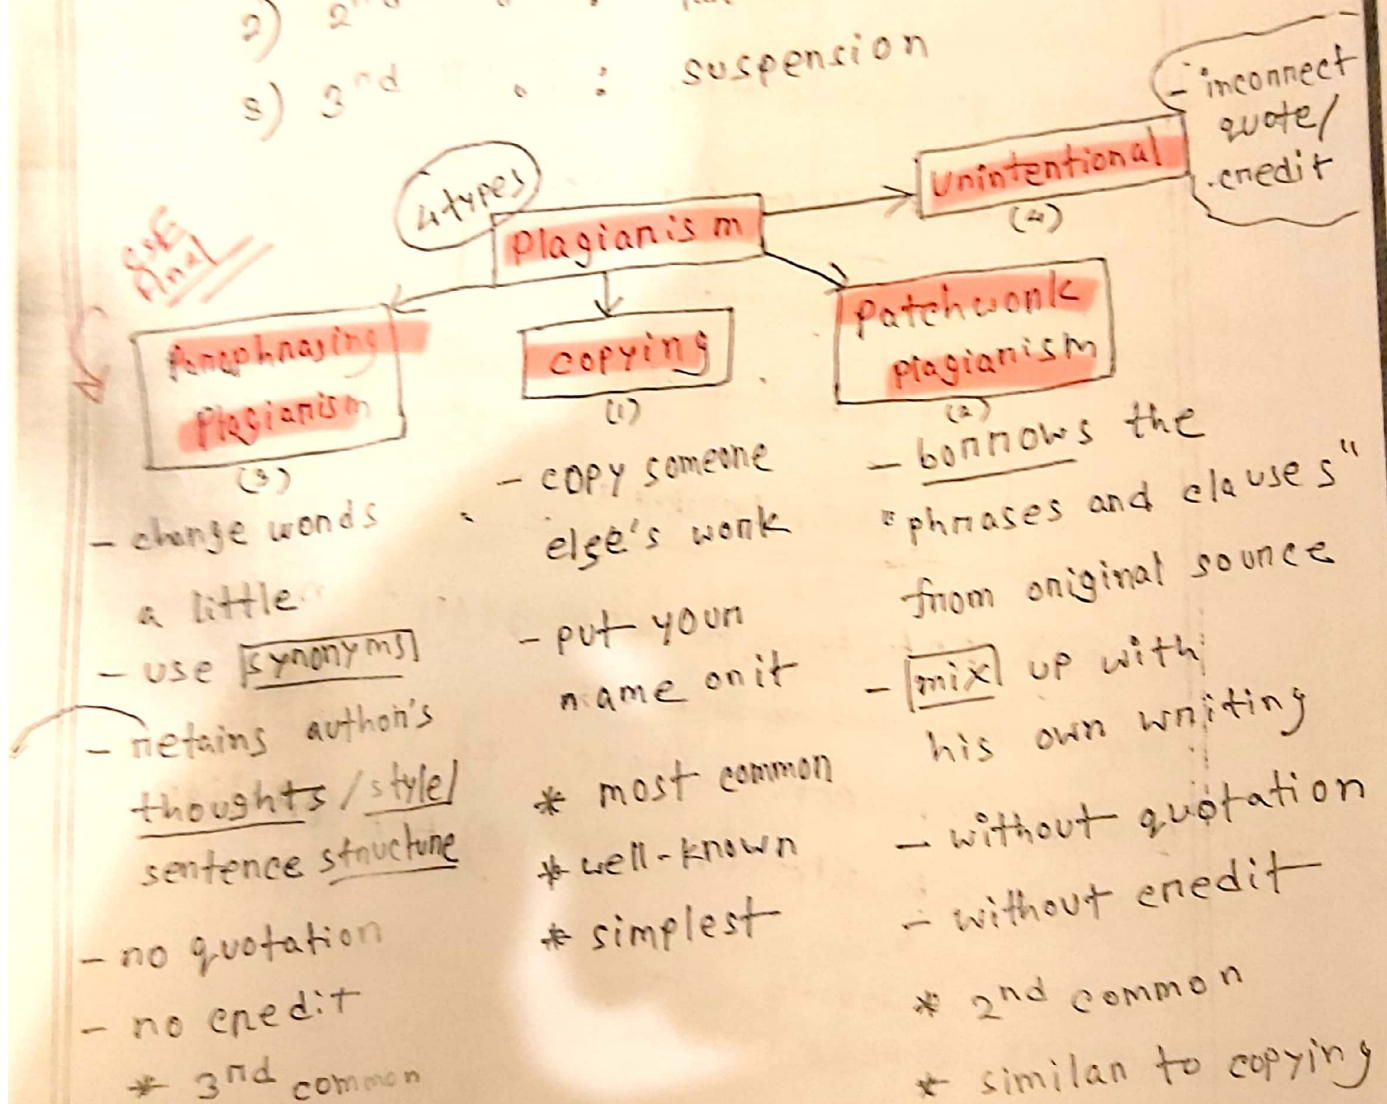 2) 2nd " :
3) 3rd " : suspension
- incorrect
quote/
credit
4 types
Plagiarism
Unintentional
(4)
SSE
Final
Paraphrasing
Plagiarism
(3)
copying
(1)
Patchwork
plagiarism
(2)
- change words
a little
- use synonyms
- retains author's
thoughts/style/
sentence structure
- no quotation
- no credit
* 3rd common
- copy someone
else's work
- put your
name on it
* most common
* well-known
* simplest
- borrows the
"phrases and clauses"
from original source
- mix up with
his own writing
- without quotation
- without credit
* 2nd common
* similar to copying